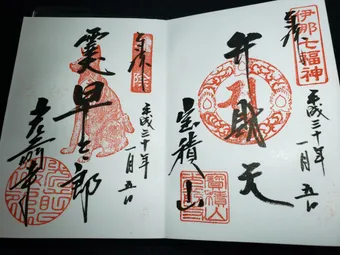 伊那七福神
奉拝
平成三十年
一月五日
弁財天
宝積山
奉拝
平成三十年
一月五日
霊犬早太郎
光前寺